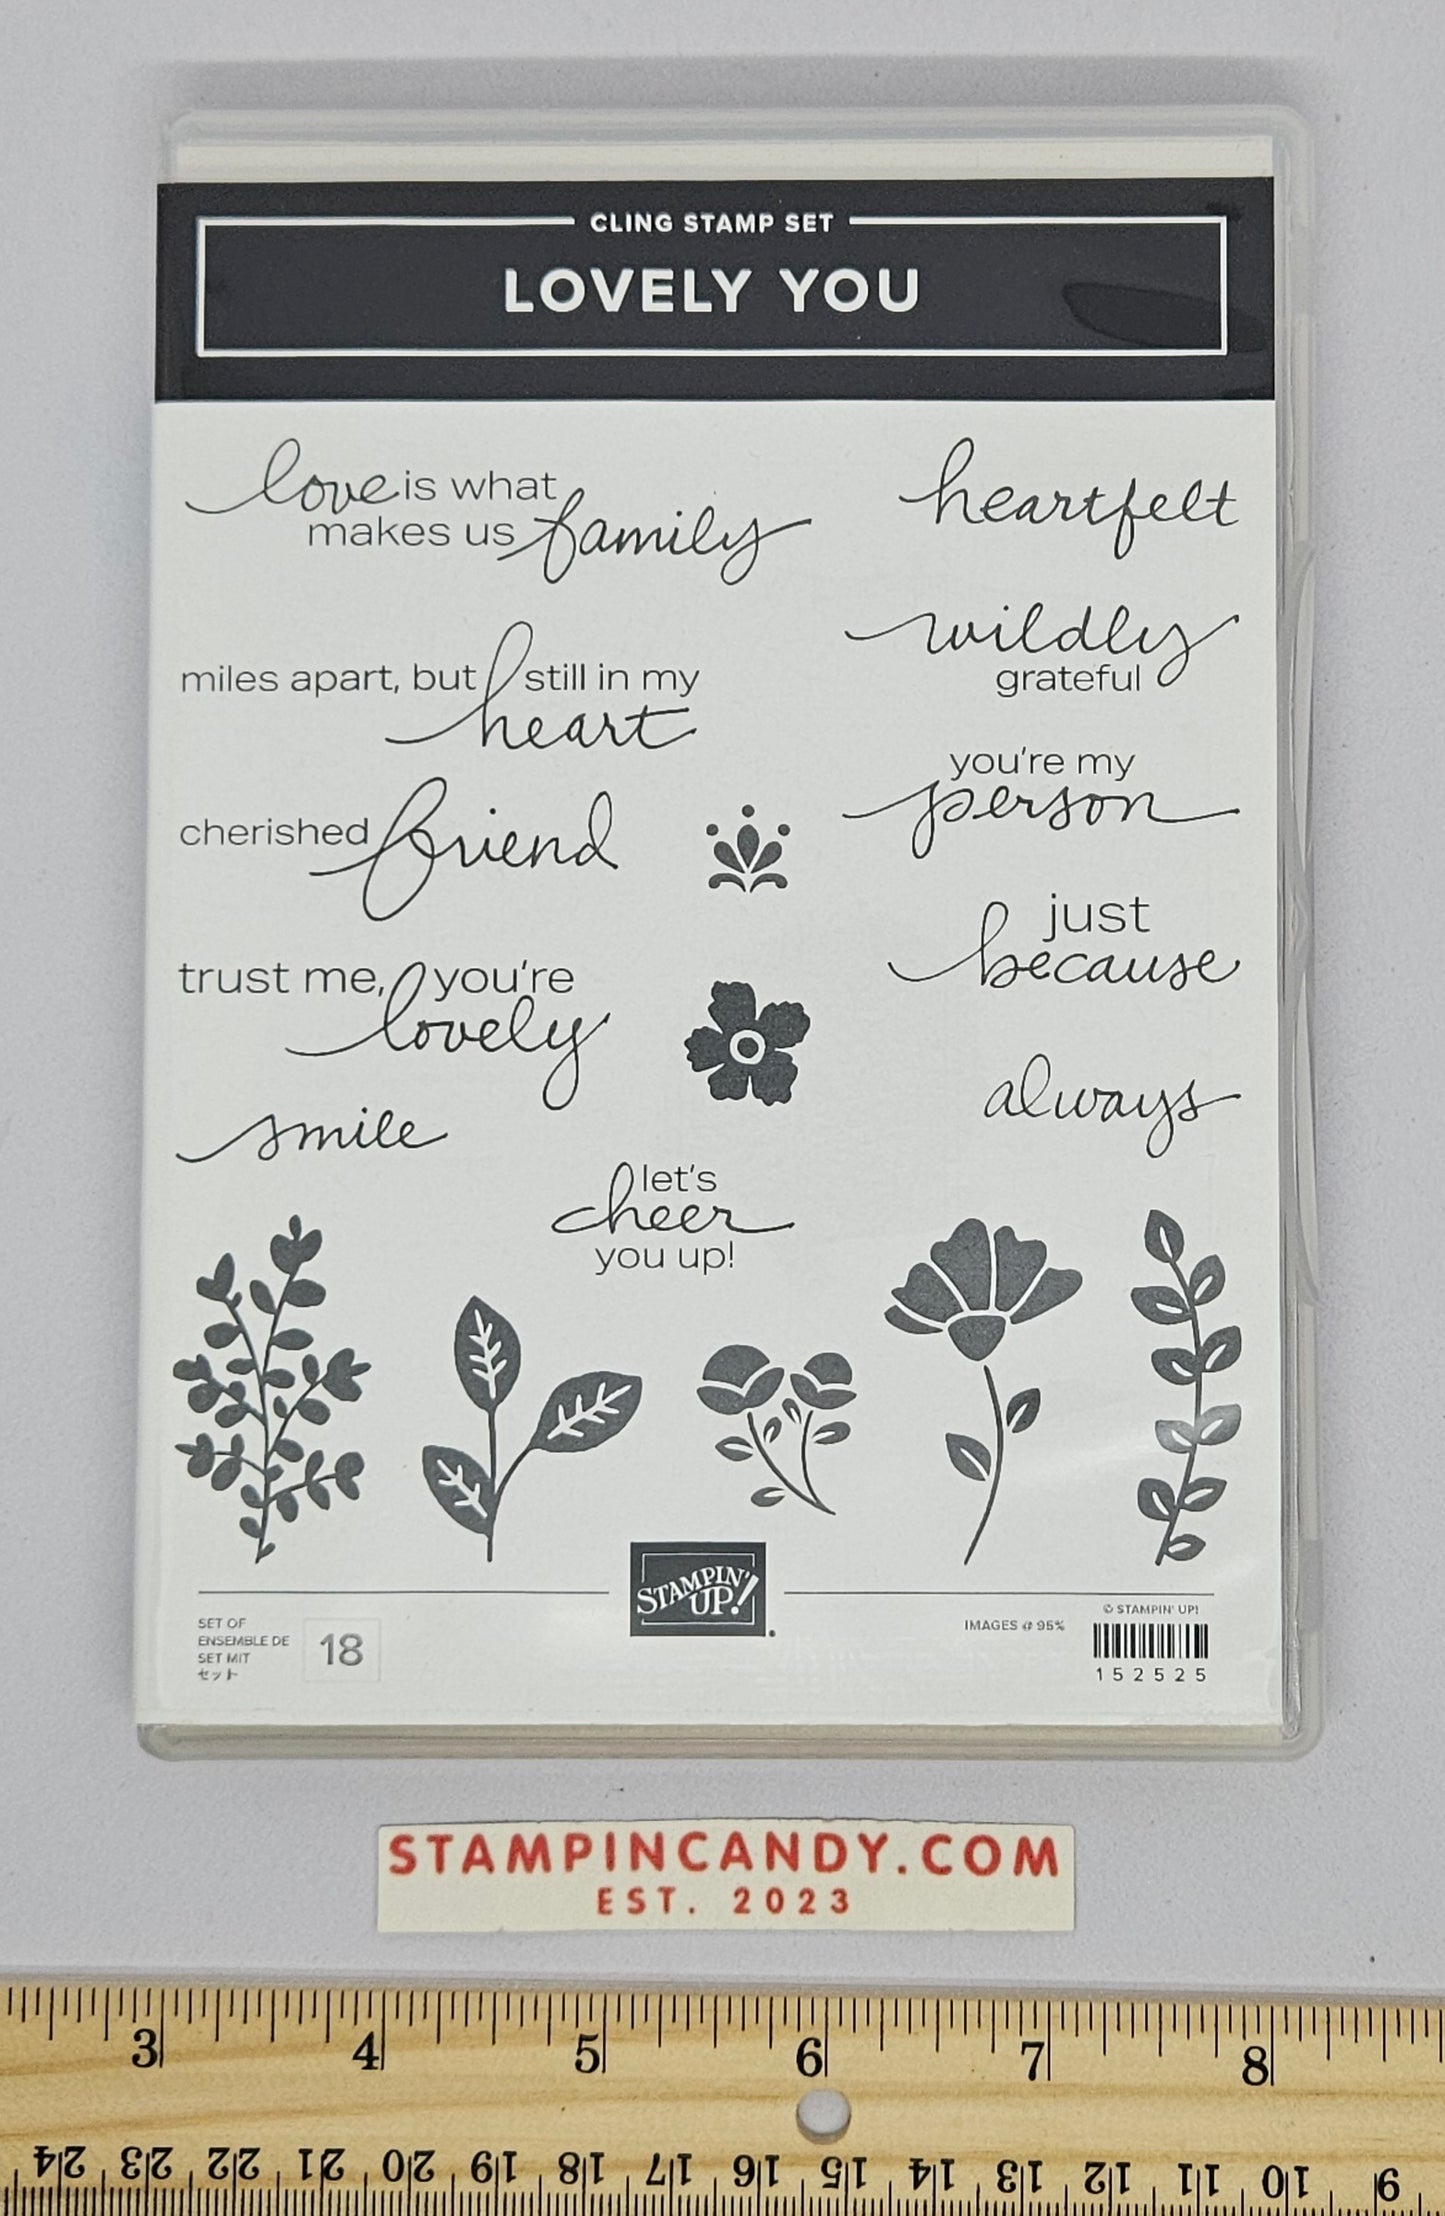 CLING STAMP SET
LOVELY YOU
love is what
makes us family
heartfelt
wildly
grateful
miles apart, but still in my
heart
you're my
person
cherished friend
just
because
trust me, you're
lovely
always
smile
let's
cheer
you up!
STAMPIN'
UP!
SET OF
ENSEMBLE DE
SET MIT
セット
18
IMAGES @ 95%
© STAMPIN' UP!
152525
STAMPINCANDY.COM
EST. 2023
3 4 5 6 7 8
24 23 22 21 20 19 18 17 16 15 14 13 12 11 10 9